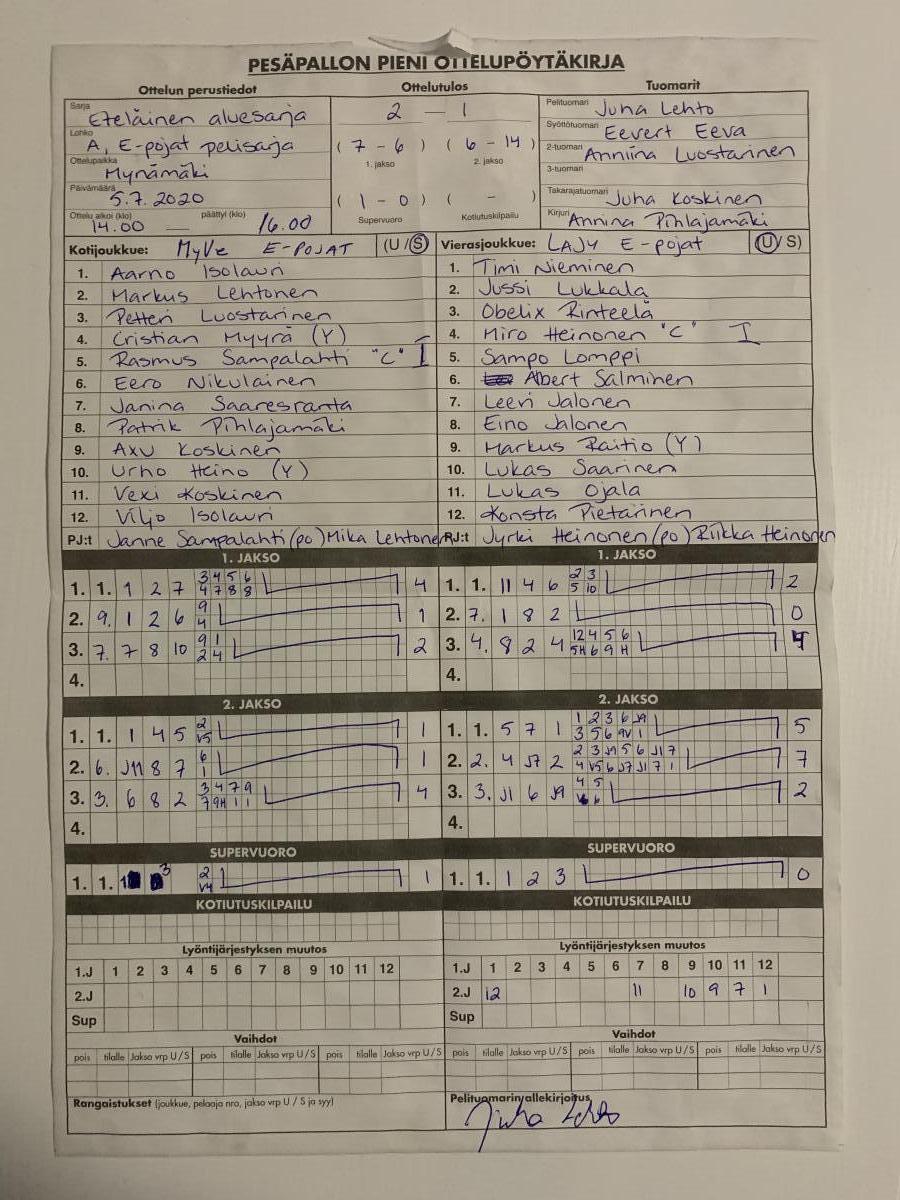 PESÄPALLON PIENI OTTELUPÖYTÄKIRJA
Ottelun perustiedot Ottelutulos Tuomarit
Sarja Eteläinen aluesarja
Lohko A, E-pojat pelisarja
Ottelupaikka Mynämäki
Päivämäärä 5.7.2020
Ottelu alkoi (klo) 14.00 — päättyi (klo) 16.00
2 — 1
( 7 - 6 ) ( 6 - 14 )
1. jakso 2. jakso
( 1 - 0 ) ( - )
Supervuoro Kotiutuskilpailu
Pelituomari Juha Lehto
Syöttötuomari Eevert Eeva
2-tuomari Anniina Luostarinen
3-tuomari
Takarajatuomari Juha Koskinen
Kirjuri Annina Pihlajamäki
Kotijoukkue: MyVe E-POJAT (U / S)
1. Aarno Isolauri
2. Markus Lehtonen
3. Petteri Luostarinen
4. Cristian Myyrä (Y)
5. Rasmus Sampalahti "C" I
6. Eero Nikulainen
7. Janina Saaresranta
8. Patrik Pihlajamäki
9. Axu Koskinen
10. Urho Heino (Y)
11. Vexi Koskinen
12. Viljo Isolauri
PJ:t Janne Sampalahti (po) Mika Lehtonen
Vierasjoukkue: LAJy E-pojat (U / S)
1. Timi Nieminen
2. Jussi Lukkala
3. Obelix Rinteelä
4. Miro Heinonen "C" I
5. Sampo Lomppi
6. Albert Salminen
7. Leevi Jalonen
8. Eino Jalonen
9. Markus Raitio (Y)
10. Lukas Saarinen
11. Lukas Ojala
12. Konsta Pietarinen
PJ:t Jyrki Heinonen (po) Riikka Heinonen
1. JAKSO
1. 1. 1 2 7 3 4 5 6 4
4 7 8 8
2. 9. 1 2 6 9 1
4
3. 7. 7 8 10 9 1 2
2 4
4.
1. JAKSO
1. 1. 11 4 6 2 3 2
5 10
2. 7. 1 8 2 0
3. 4. 8 2 4 12 4 5 6 4
5H 6 9 H
4.
2. JAKSO
1. 1. 1 4 5 2 1
V5
2. 6. J11 8 7 6 1
1
3. 3. 6 8 2 3 4 7 9 4
7 9H 1 1
4.
2. JAKSO
1. 1. 5 7 1 1 2 3 6 J9 5
3 5 6 9V 1
2. 2. 4 J7 2 2 3 J9 5 6 J1 7 7
4 V5 6 J7 J1 7 1
3. 3. J1 6 J9 4 5 2
6
4.
SUPERVUORO
1. 1. 1 3 2 1
V4
SUPERVUORO
1. 1. 1 2 3 0
KOTIUTUSKILPAILU
KOTIUTUSKILPAILU
Lyöntijärjestyksen muutos
1.J 1 2 3 4 5 6 7 8 9 10 11 12
2.J
Sup
Lyöntijärjestyksen muutos
1.J 1 2 3 4 5 6 7 8 9 10 11 12
2.J 12 11 10 9 7 1
Sup
Vaihdot
pois tilalle Jakso vrp U / S pois tilalle Jakso vrp U / S pois tilalle Jakso vrp U / S
Vaihdot
pois tilalle Jakso vrp U / S pois tilalle Jakso vrp U / S pois tilalle Jakso vrp U / S
Rangaistukset (joukkue, pelaaja nro, jakso vrp U / S ja syy)
Pelituomarin allekirjoitus
Juha Lehto